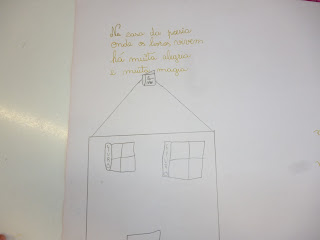 Na casa da
onde os livros vivem
há muita alegria
e muita magia